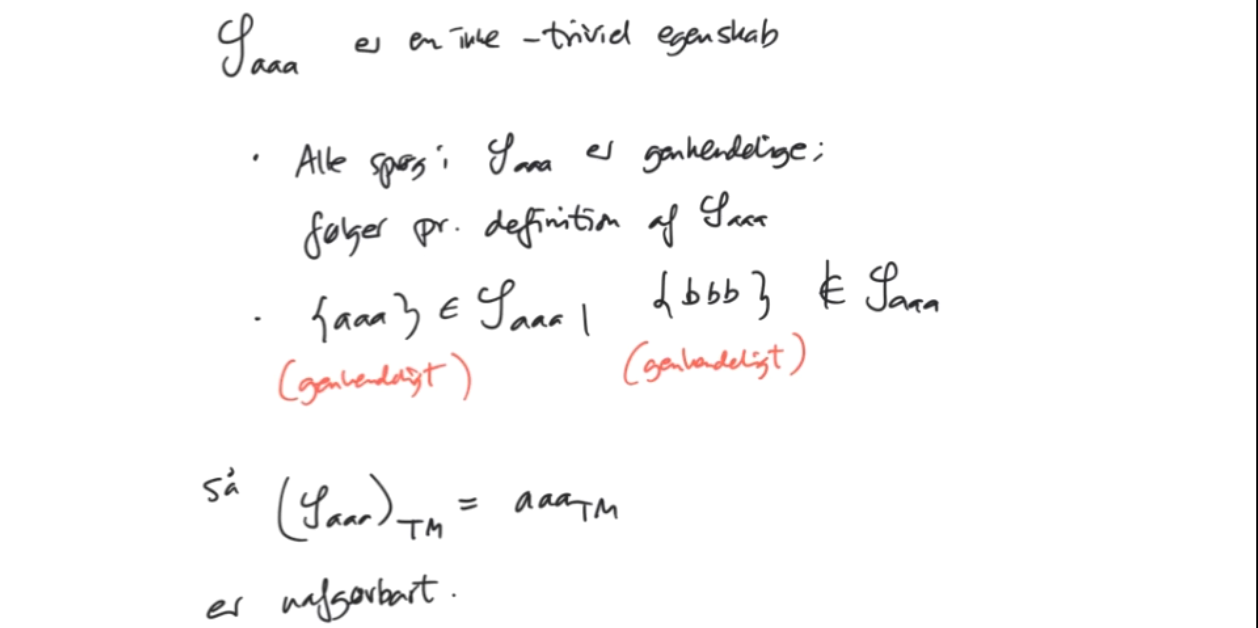 𝒮aaa er en ikke-triviel egenskab
· Alle sprog i 𝒮aaa er genkendelige;
følger pr. definition af 𝒮aaa
· {aaa} ∈ 𝒮aaa, {bbb} ∉ 𝒮aaa
(genkendeligt) (genkendeligt)
så (𝒮aaa)TM = aaaTM
er uafgørbart.